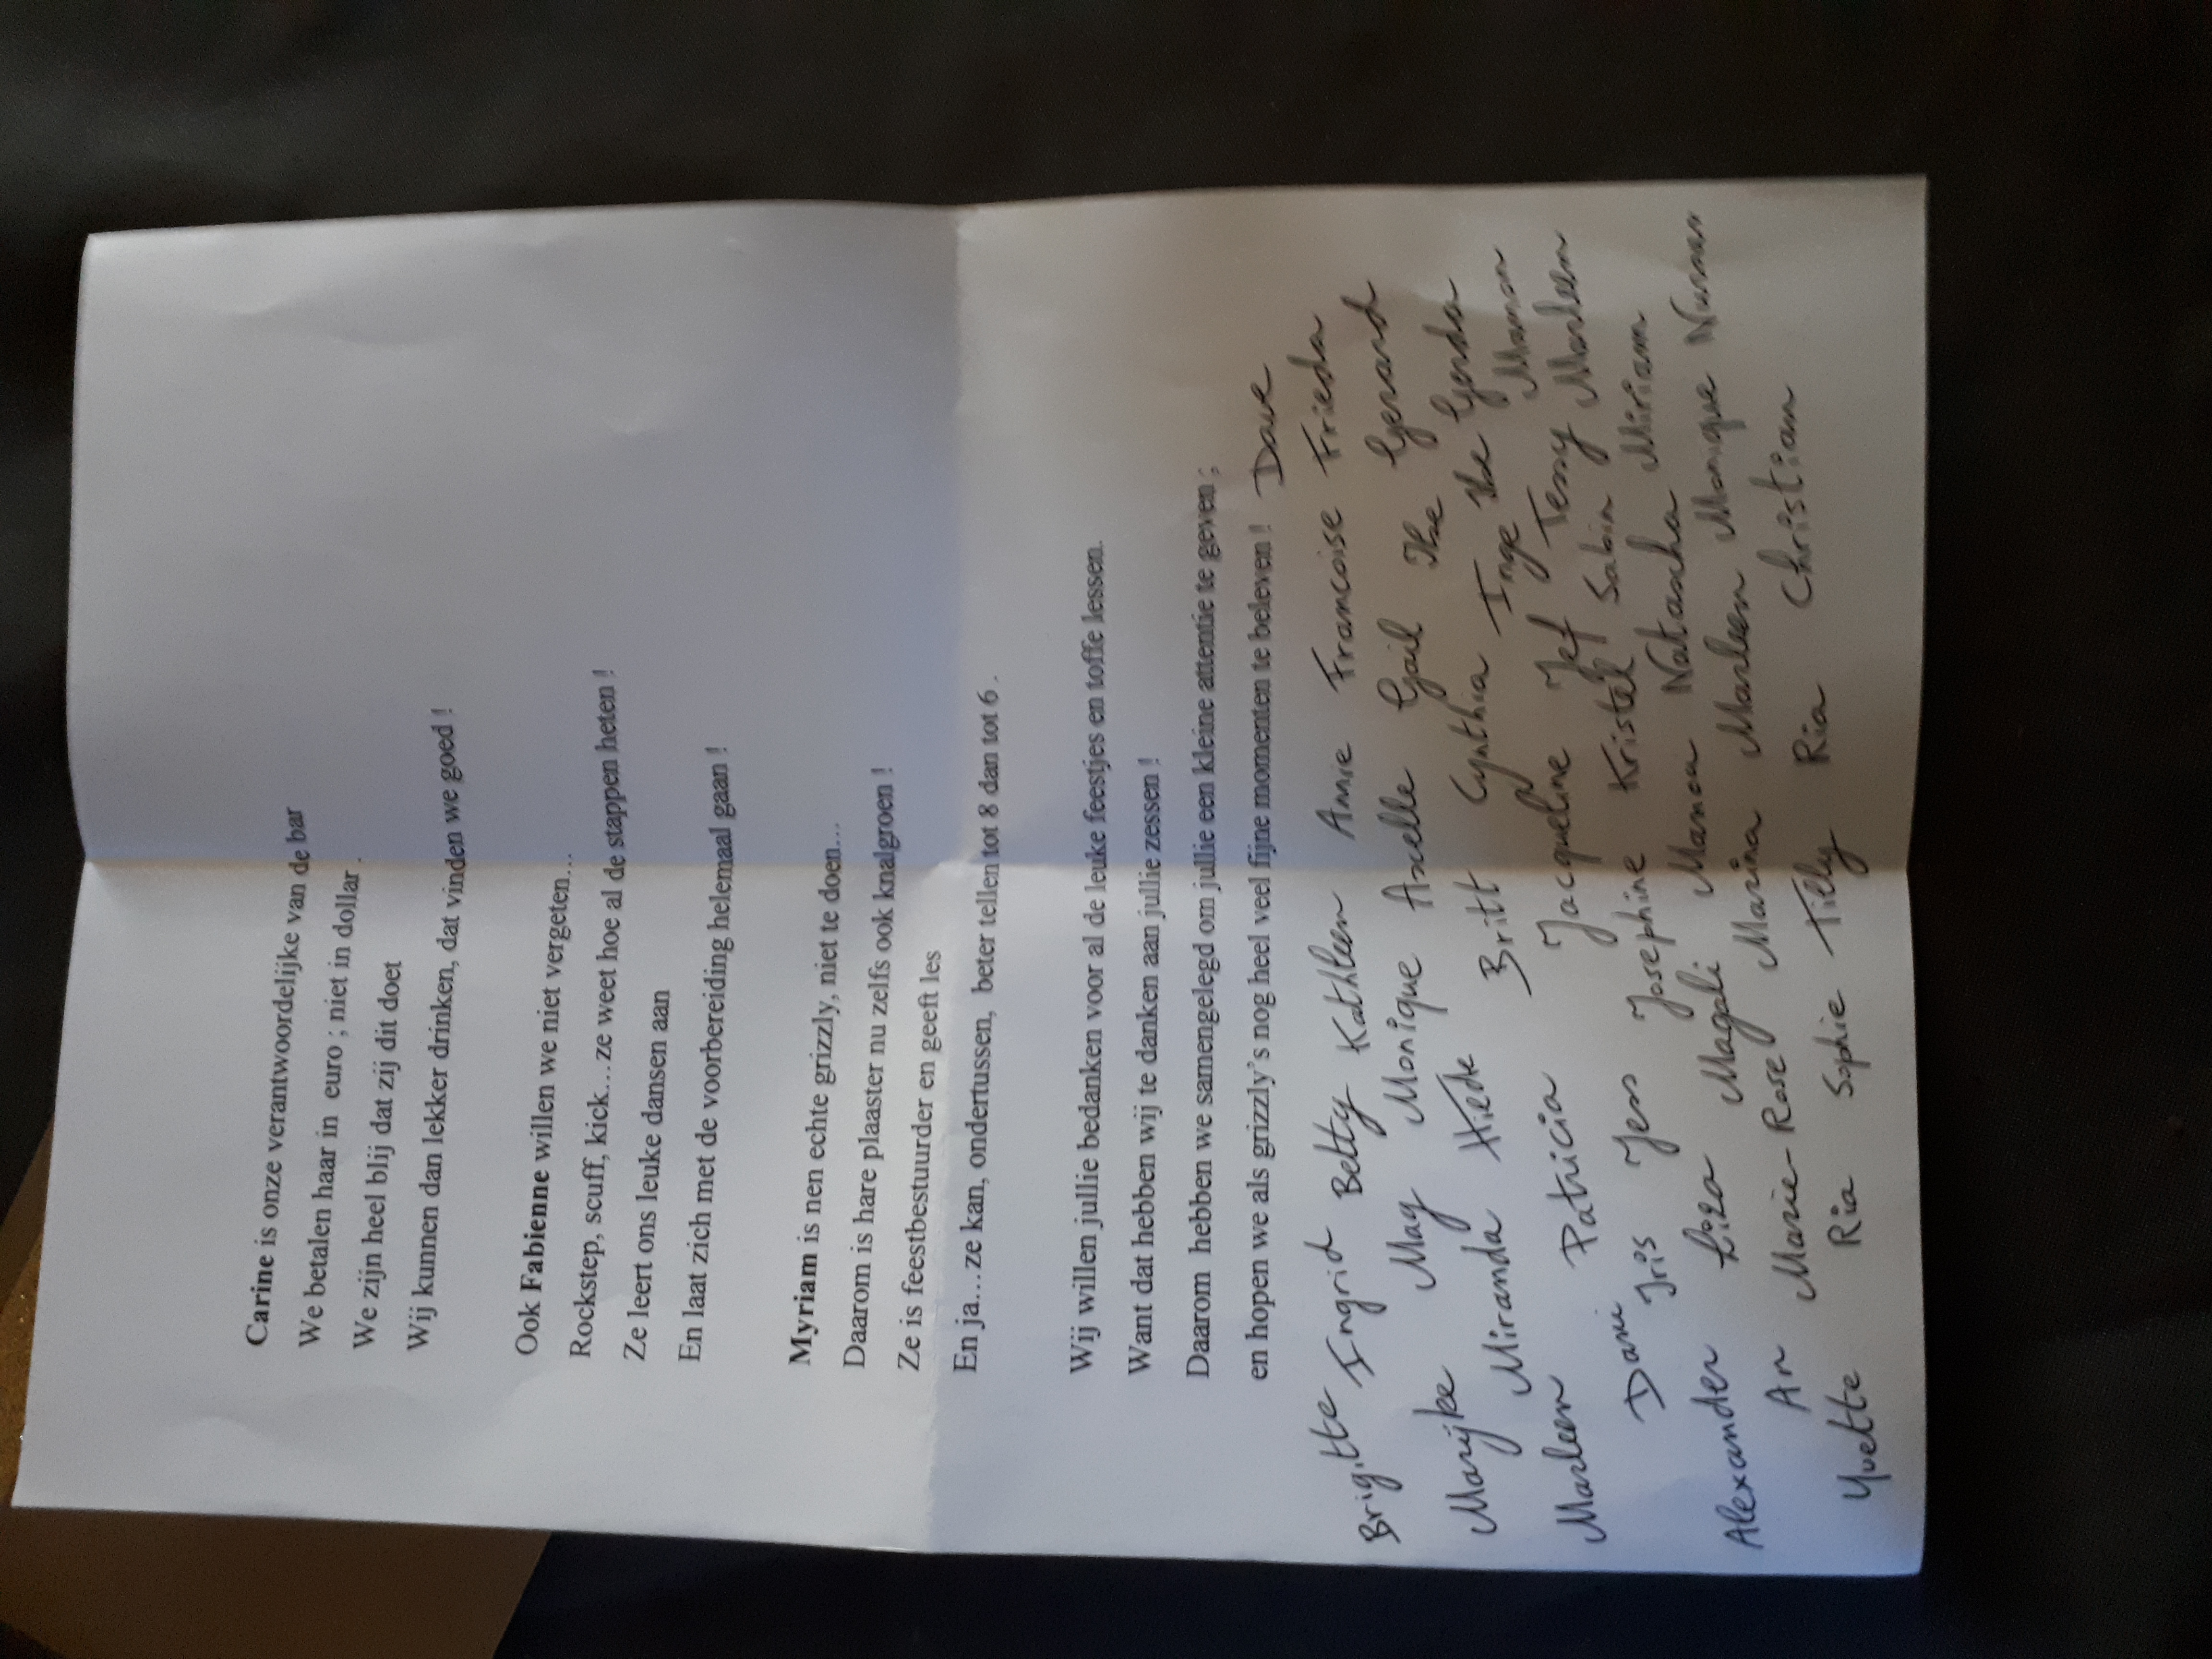 Carine is onze verantwoordelijke van de bar
We betalen haar in euro ; niet in dollar .
We zijn heel blij dat zij dit doet
Wij kunnen dan lekker drinken, dat vinden we goed !
Ook Fabienne willen we niet vergeten…
Rockstep, scuff, kick…ze weet hoe al de stappen heten !
Ze leert ons leuke dansen aan
En laat zich met de voorbereiding helemaal gaan !
Myriam is nen echte grizzly, niet te doen…
Daarom is hare plaaster nu zelfs ook knalgroen !
Ze is feestbestuurder en geeft les
En ja…ze kan, ondertussen, beter tellen tot 8 dan tot 6 .
Wij willen jullie bedanken voor al de leuke feestjes en toffe lessen.
Want dat hebben wij te danken aan jullie zessen !
Daarom hebben we samengelegd om jullie een kleine attentie te geven ;
en hopen we als grizzly's nog heel veel fijne momenten te beleven ! Dave
Brigitte Ingrid Betty Kathleen Annie Francoise Frieda
Marijke May Monique Axelle Gail Ilse Gerard
Miranda Hilde Britt Cynthia Inge Ilse Gerda
Marleen Patricia Jacqueline Jef Tessy Marleen Manon
Dani Iris Jess Josephine Kristel Sabin Miriam
Alexander Liza Magali Manon Natascha
An Marie-Rose Marina Marleen Monique
Yvette Ria Sophie Tilly Ria Christian